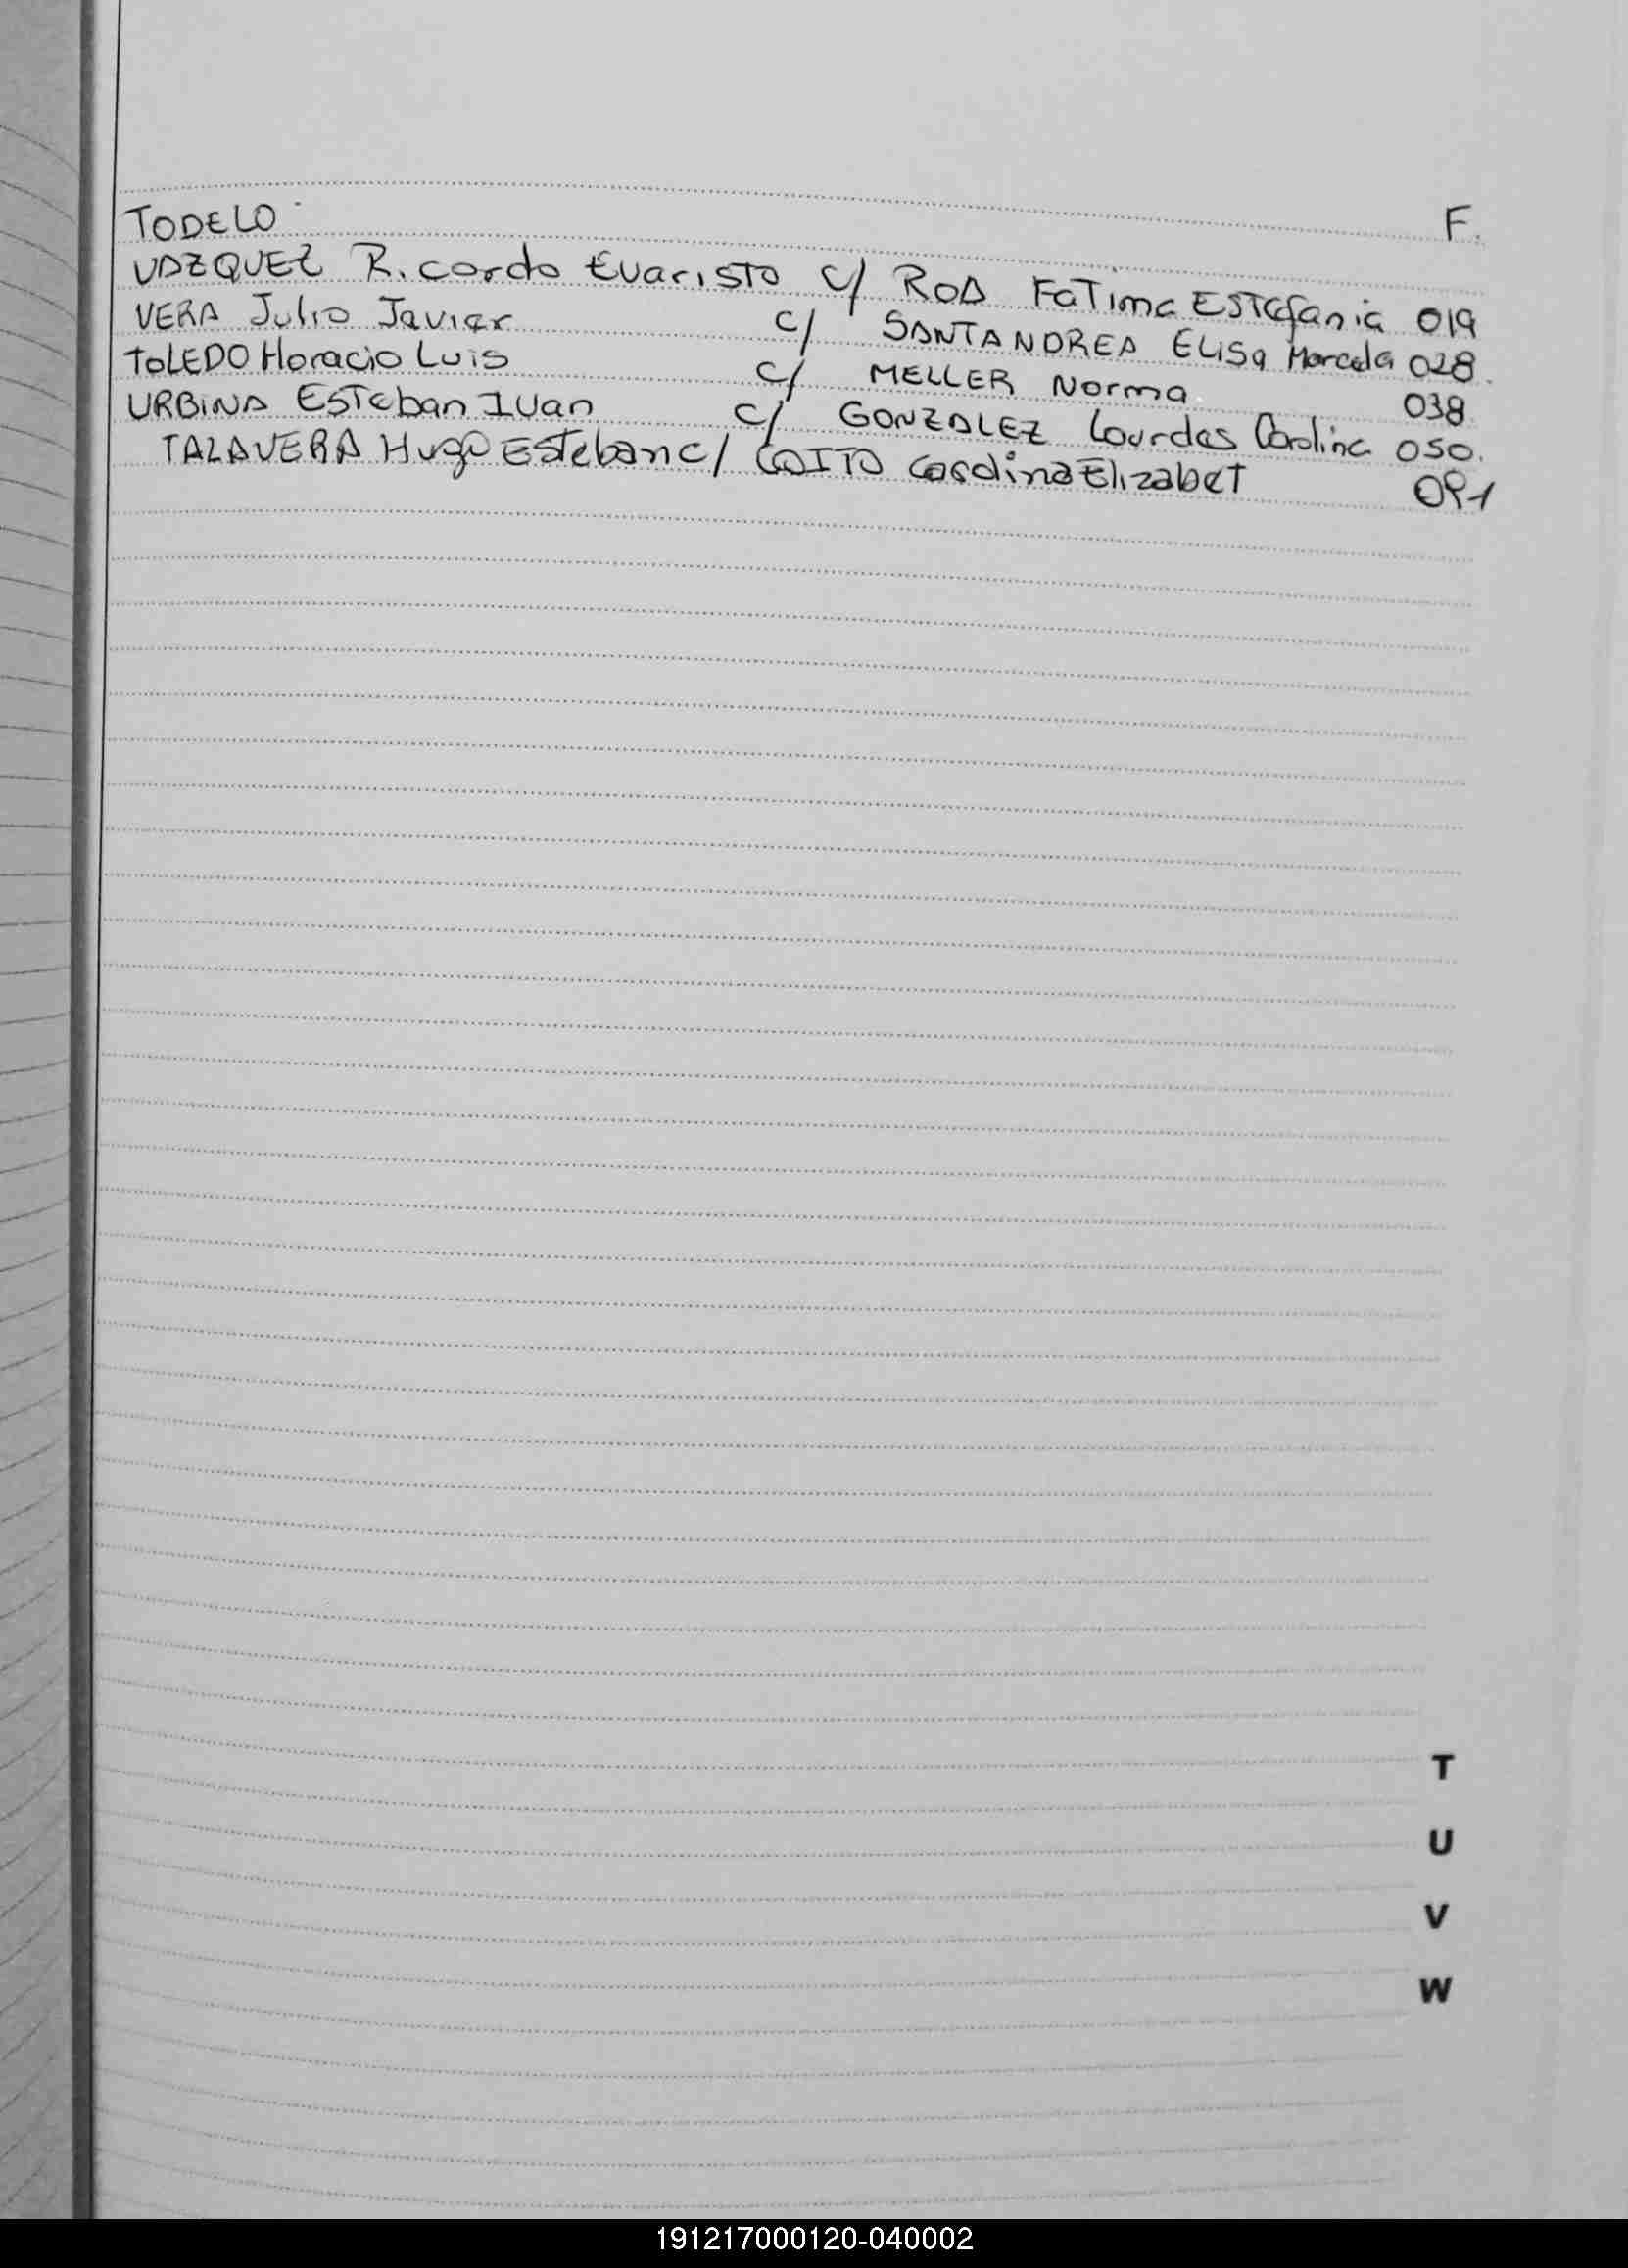 TODELO F.
VAZQUEZ Ricardo Evaristo c/ ROA FaTima ESTefania 019
VERA Julio Javier c/ SANTANDREA ELISA Marcela 028.
ToLEDO Horacio Luis c/ MELLER Norma 038
URBINA ESTeban Ivan c/ GONZALEZ Lourdes Carolina 050.
TALAVERA Hugo Esteban c/ Elizabet 091
T
U
V
W
191217000120-040002